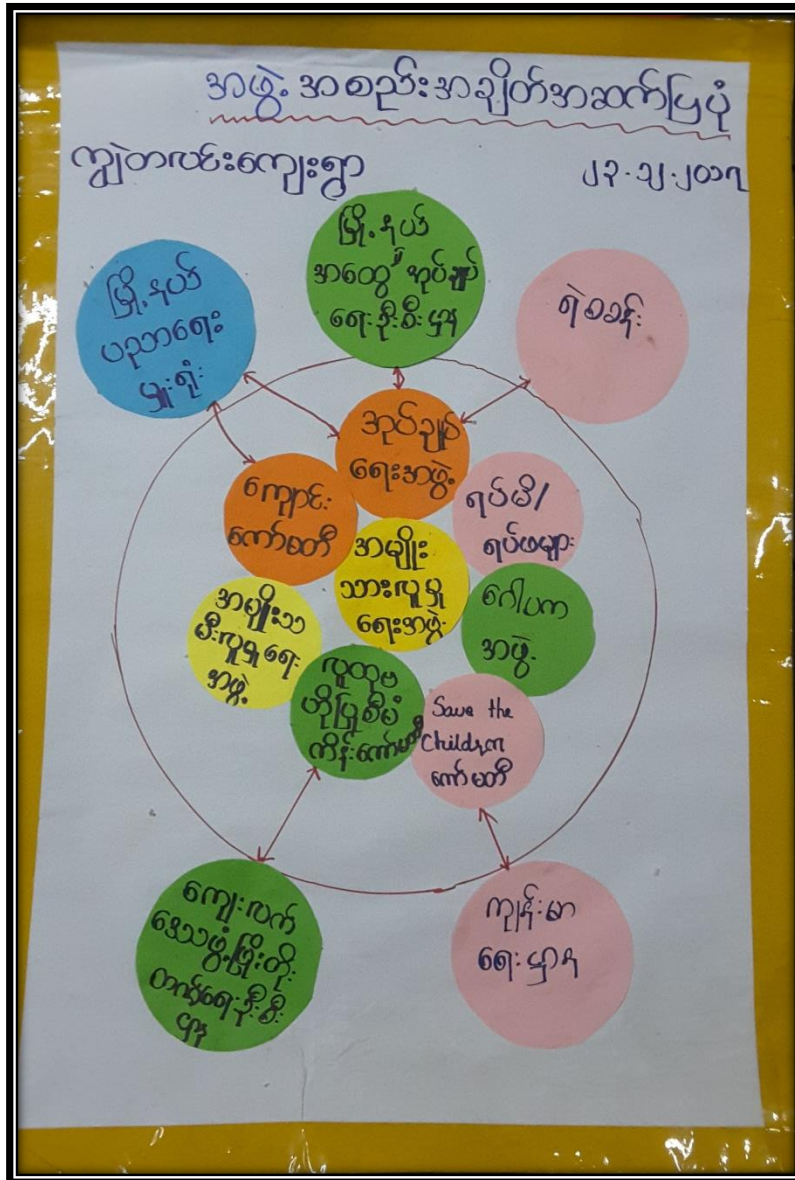 အဖွဲ့အစည်းအချိတ်အဆက်ပြပုံ
ကျွဲတလင်းကျေးရွာ
၂၃.၁၂.၂၀၁၇
မြို့နယ်
အထွေထွေအုပ်ချုပ်
ရေးဦးစီးဌာန
မြို့နယ်
ပညာရေး
မှူးရုံး
ရဲစခန်း
အုပ်ချုပ်
ရေးအဖွဲ့
ကျောင်း
ကော်မတီ
ရပ်မိ/
ရပ်ဖများ
အမျိုး
သားလူမှု
ရေးအဖွဲ့
အမျိုးသ
မီးလူမှုရေး
အဖွဲ့
ဂေါပက
အဖွဲ့
လူထုဗ
ဟိုပြုစီမံ
ကိန်းကော်မတီ
Save the
Children
ကော်မတီ
ကျေးလက်
ဒေသဖွံ့ဖြိုးတိုး
တက်ရေးဦးစီး
ဌာန
ကျန်းမာ
ရေးဌာန